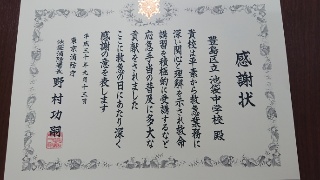 感謝状
豊島区立 池袋中学校 殿
貴校は平素から救急業務に
深い関心と理解を示され救命
講習を積極的に受講するなど
応急手当の普及に多大な
貢献をされました
ここに救急の日にあたり深く
感謝の意を表します
平成三十年九月十三日
東京消防庁
池袋消防署長 野村功